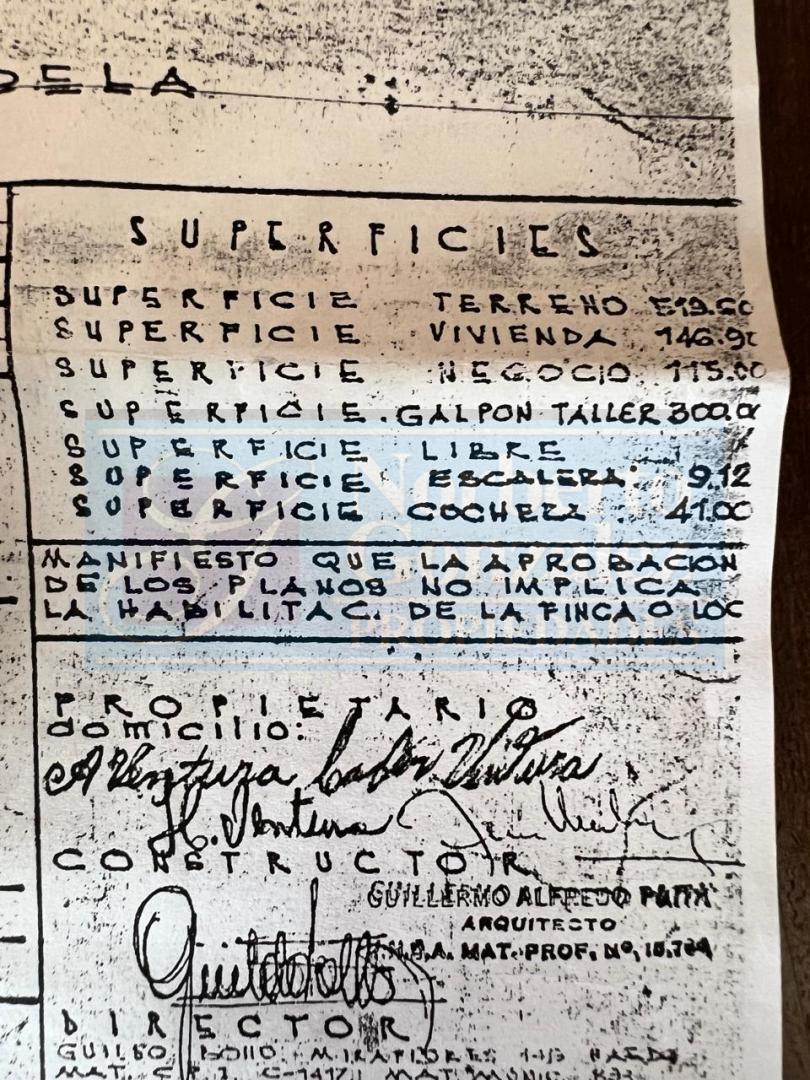 DELA
SUPERFICIES
SUPERFICIE TERRENO 519.60
SUPERFICIE VIVIENDA 146.90
SUPERFICIE NEGOCIO 115.00
SUPERFICIE. GALPON TALLER 300.00
SUPERFICIE LIBRE
SUPERFICIE ESCALERA: 9.12
SUPERFICIE COCHERA : 41.00
MANIFIESTO QUE LA APROBACION
DE LOS PLANOS NO IMPLICA
LA HABILITAC. DE LA FINCA O LOC
PROPIEDADES
PROPIETARIO
domicilio:
CONSTRUCTOR
GUILLERMO ALFREDO
ARQUITECTO
MAT. PROF. Nº,
DIRECTOR
MIRAFLORES
MAT. MUNIC.